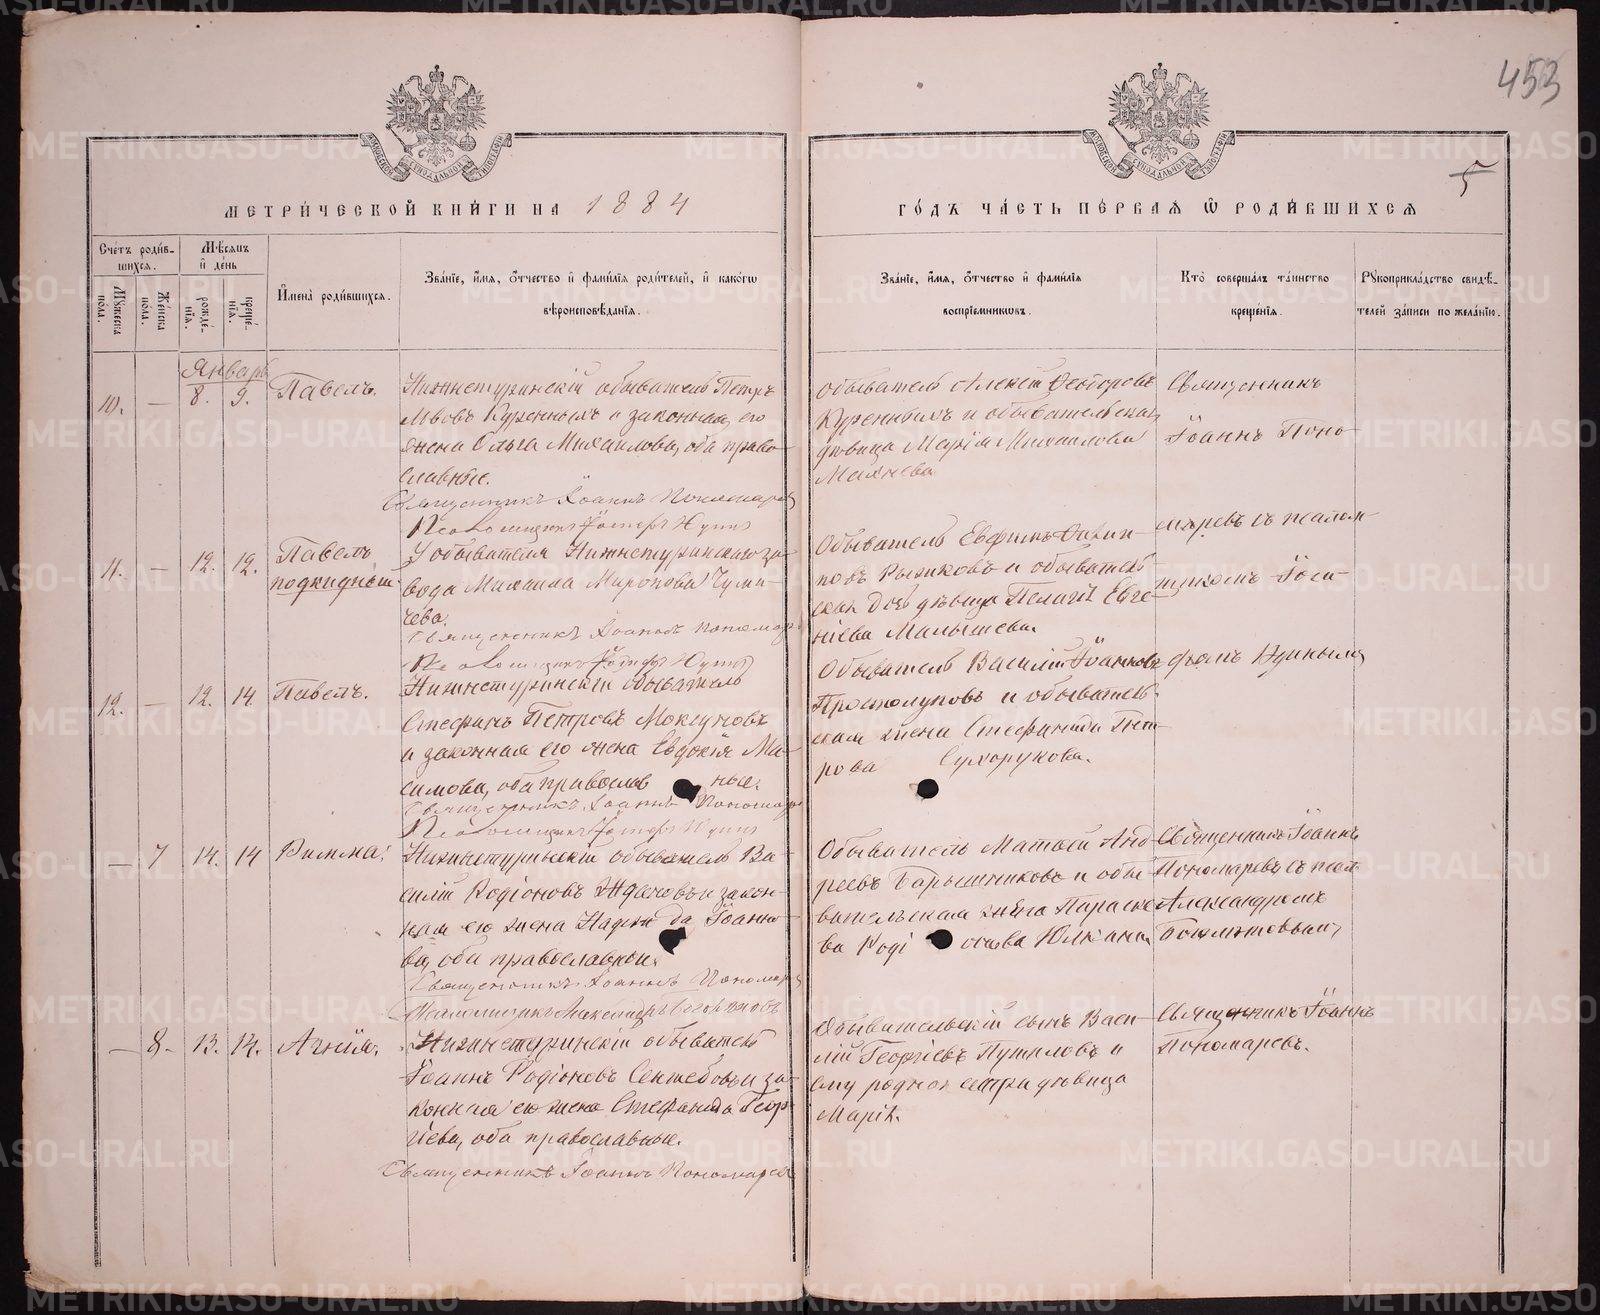 453
5
МЕТРИЧЕСКОЙ КНИГИ НА 1884
ГОДЪ ЧАСТЬ ПЕРВАЯ Ѿ РОДИВШИХСЯ
Счетъ родив-
шихся.
Мѣсяцъ
и день
Мужеска
пола.
Женска
пола.
рожде-
нія.
креще-
нія.
Имена родившихся.
Званіе, имя, отчество и фамилія родителей, и какогѡ
вѣроисповѣданія.
Званіе, имя, отчество и фамилія
воспріемникѡвъ.
Кто совершалъ таинство
крещенія.
Рукоприкладство свидѣ-
телей записи по желанію.
Январь
10. — 8. 9. Павелъ.
Нижнетуринскій обыватель Петръ
Львовъ Куренныхъ и законная его
жена Ольга Михаилова, оба право-
славные.
Священникъ Іоаннъ Пономаревъ
Обыватель Алексій Феодоровъ
Куренныхъ и обывательская
дѣвица Марія Михаилова
Махнева
Священникъ
Іоаннъ Поно-
маревъ съ псалом-
щикомъ Іоси-
фомъ
11. — 12. 12. Павелъ
подкидышъ
У обывателя Нижнетуринскаго за-
вода Михаила Миронова
Священникъ Іоаннъ Пономар
Обыватель Евфимъ
Рыжковъ и обыватель-
ская дочь дѣвица Пелагія Евге-
ніева Малышева.
12. — 12. 14 Павелъ.
Нижнетуринскій обыватель
Стефанъ Петровъ Моксуновъ
и законная его жена Евдокія Ма-
симова, оба православные.
Священникъ Іоаннъ Пономар
Обыватель Василій Іоанновъ
Простолуповъ и обыватель-
ская жена Стефанида Пет-
рова Сухорукова.
— 7 14. 14 Римма.
Нижнетуринскій обыватель Ва-
силій Родіоновъ Ждановъ и закон-
ная его жена Надежда Іоанно-
ва, оба православные.
Священникъ Іоаннъ Пономарев
Псаломщикъ Александръ
Обыватель Матѳій Анд-
реевъ Барышниковъ и обы-
вательская жена Параске-
ва Родіонова
Священникъ Іоаннъ
Пономаревъ съ псал
Александромъ
— 8 13. 14. Агнія.
Нижнетуринскій обыватель
Іоаннъ Родіоновъ и за-
конная его жена Стефанида Геор-
гіева, оба православные.
Священникъ Іоаннъ Пономарев
Обывательскій сынъ Васи-
лій Георгіевъ Путиловъ и
ему родная сестра дѣвица
Марія.
Священникъ Іоаннъ
Пономаревъ.
METRIKI.GASO-URAL.RU